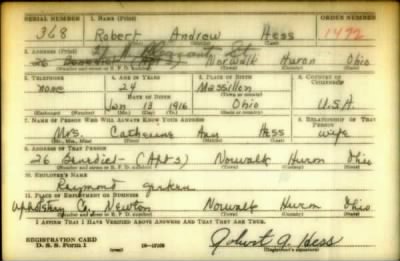 SERIAL NUMBER 1. NAME (Print) ORDER NUMBER
368 Robert Andrew Hess 1472
(First) (Middle) (Last)
2. ADDRESS (Print)
26 Benedict (Apt 3) Norwalk Huron Ohio
(Number and street or R. F. D. number) (Town) (County) (State)
3. TELEPHONE 4. AGE IN YEARS 5. PLACE OF BIRTH 6. COUNTRY OF CITIZENSHIP
none 24 Massillon
DATE OF BIRTH (Town or county)
Jan 13 1916 Ohio U.S.A.
(Exchange) (Number) (Mo.) (Day) (Yr.) (State or country)
7. NAME OF PERSON WHO WILL ALWAYS KNOW YOUR ADDRESS 8. RELATIONSHIP OF THAT PERSON
Mrs. Catherine Hess wife
(Mr., Mrs., Miss) (First) (Middle) (Last)
9. ADDRESS OF THAT PERSON
26 Benedict (Apt 3) Norwalk Huron Ohio
(Number and street or R. F. D. number) (Town) (County) (State)
10. EMPLOYER'S NAME
Raymond
11. PLACE OF EMPLOYMENT OR BUSINESS
Upholstery Co. Newton Norwalk Huron Ohio
(Number and street or R. F. D. number) (Town) (County) (State)
I AFFIRM THAT I HAVE VERIFIED ABOVE ANSWERS AND THAT THEY ARE TRUE.
REGISTRATION CARD
D. S. S. Form 1 (over) Robert A. Hess
(Registrant's signature)